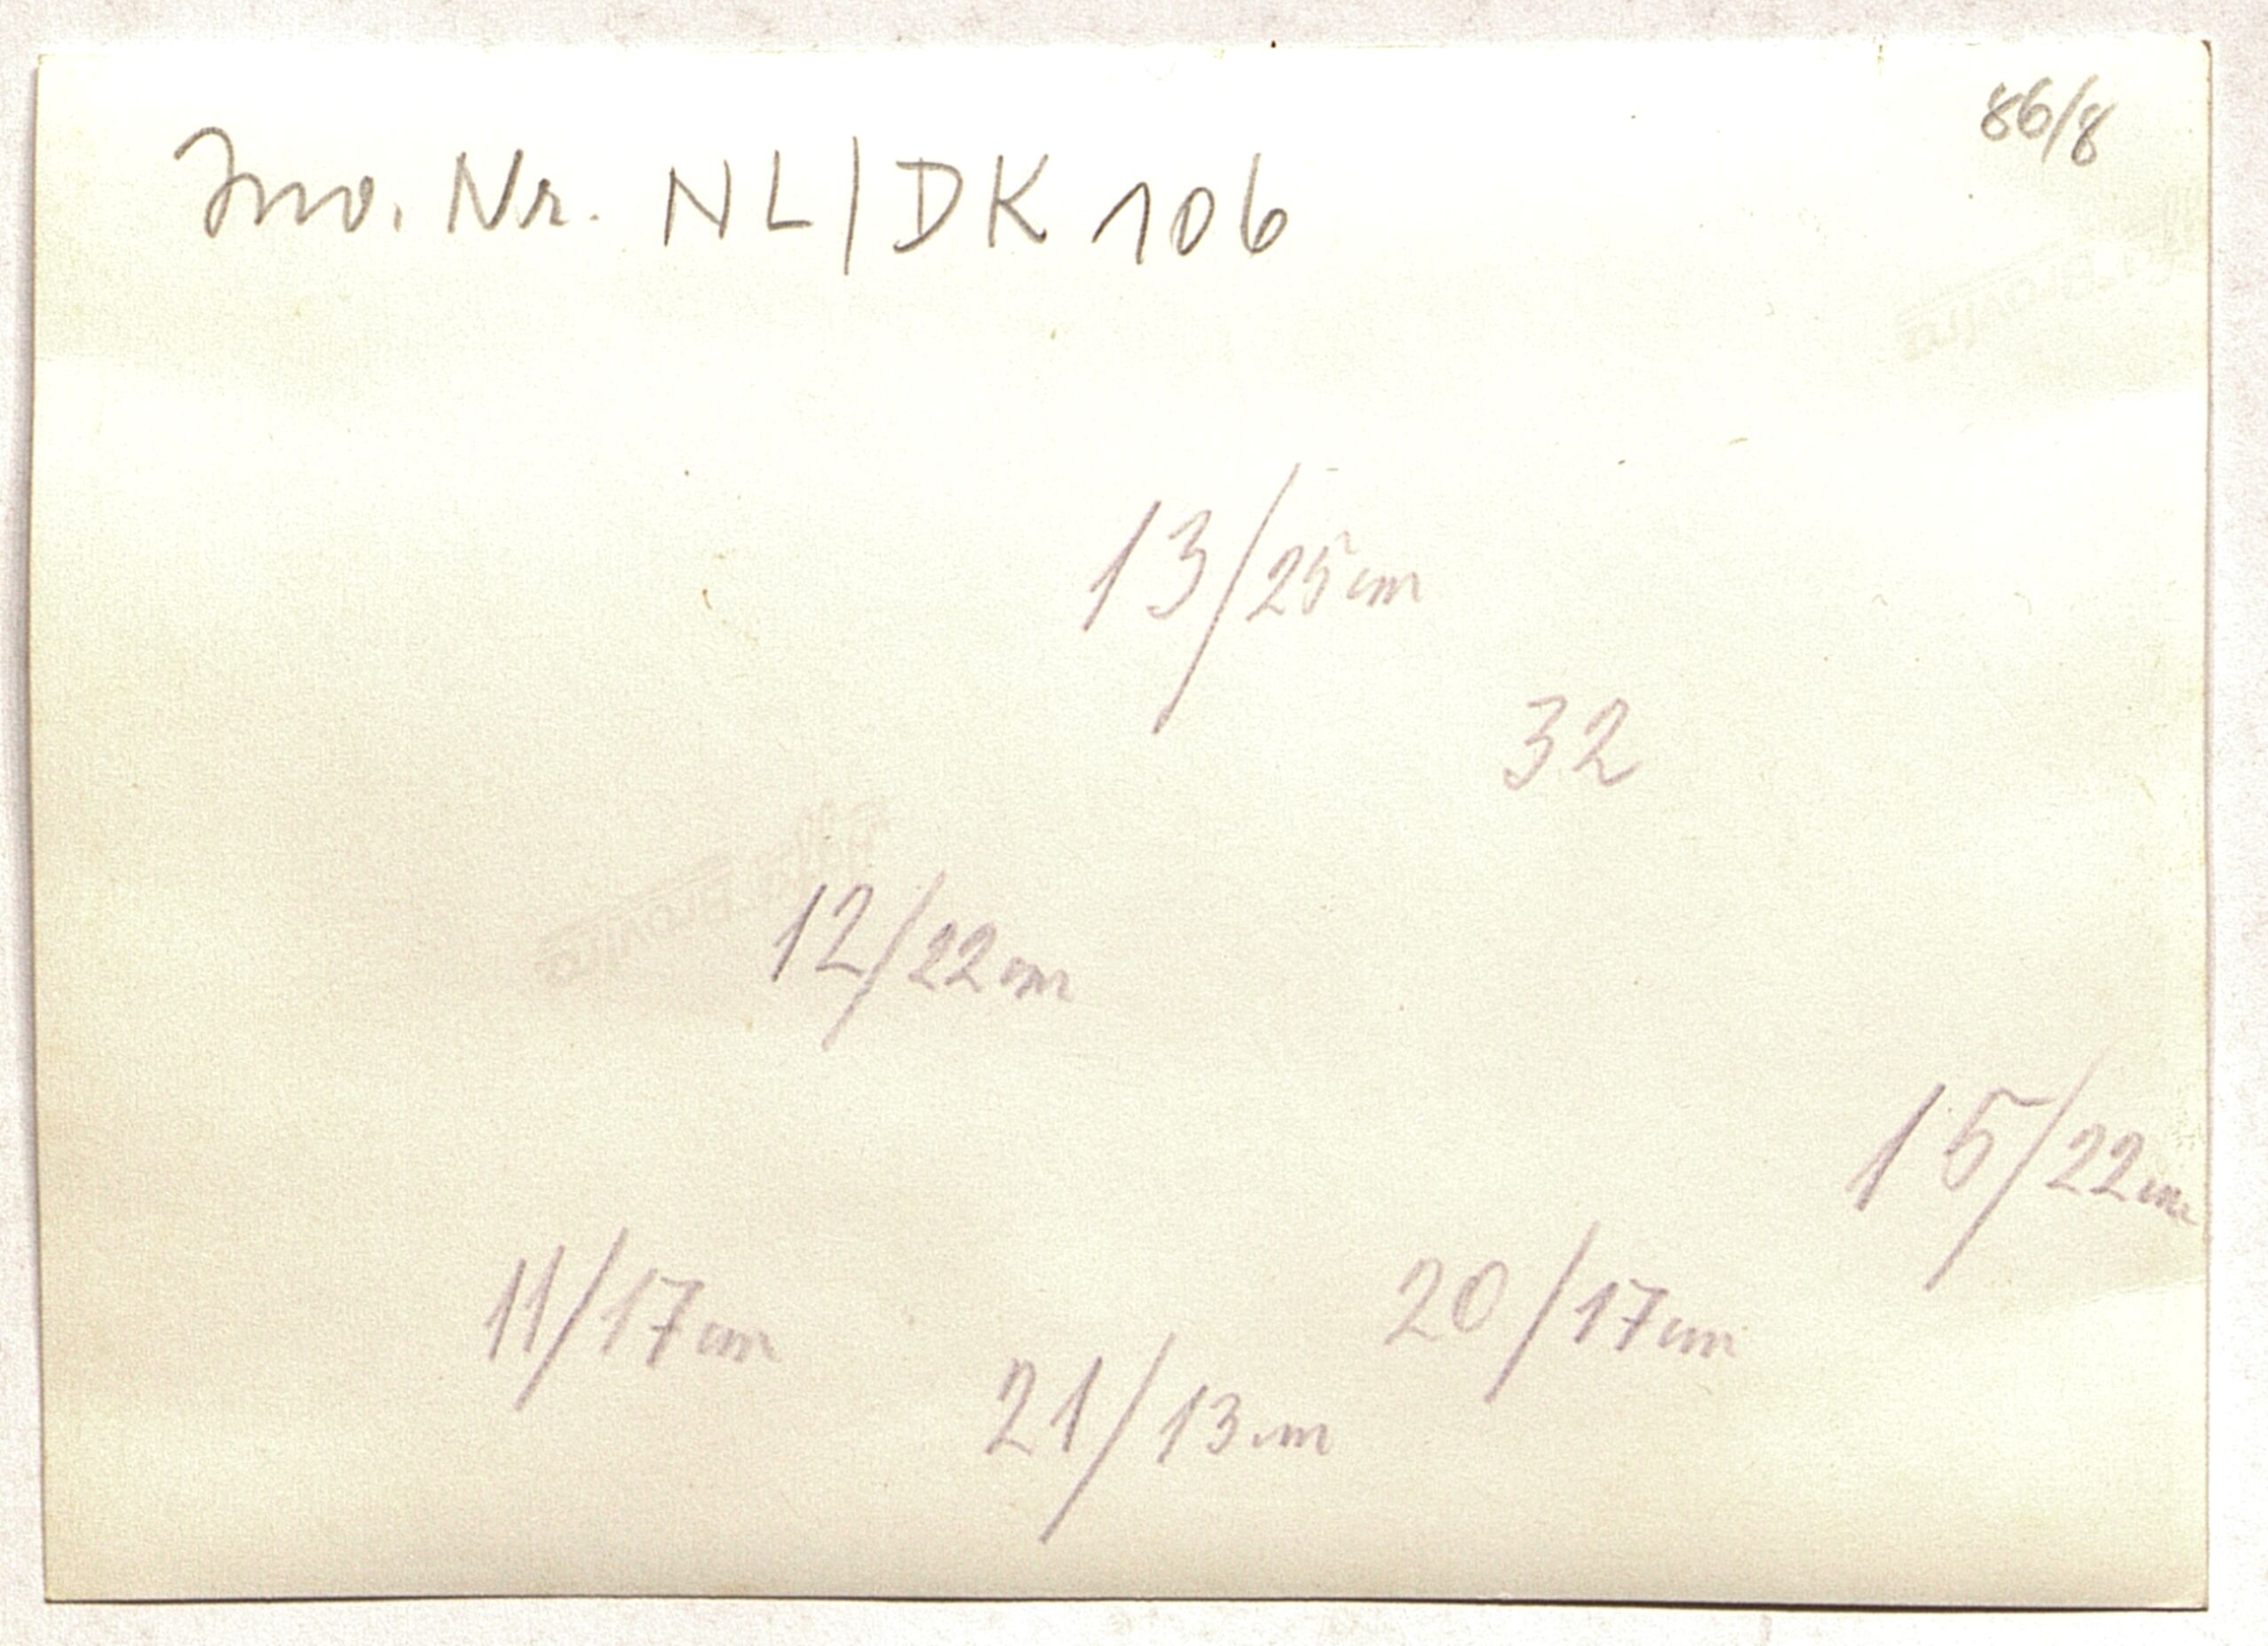 86/8
Inv. Nr. NL/DK 106
13/25cm
32
12/22cm
15/22cm
11/17cm
20/17cm
21/13cm